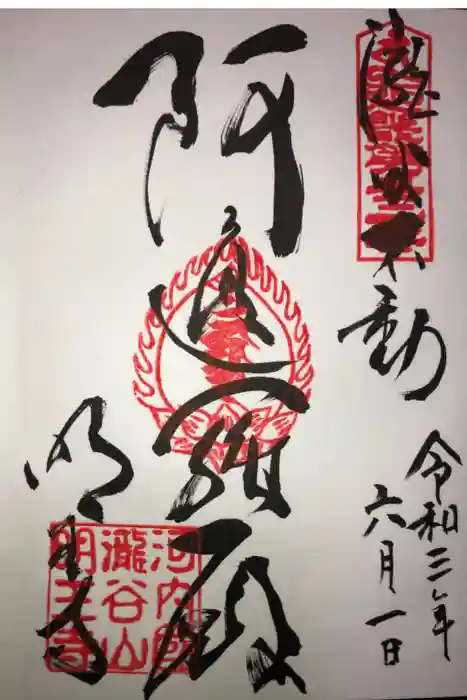 瀧谷不動
令和三年
六月一日
阿遮羅
明王寺
河内國
瀧谷山
明王寺